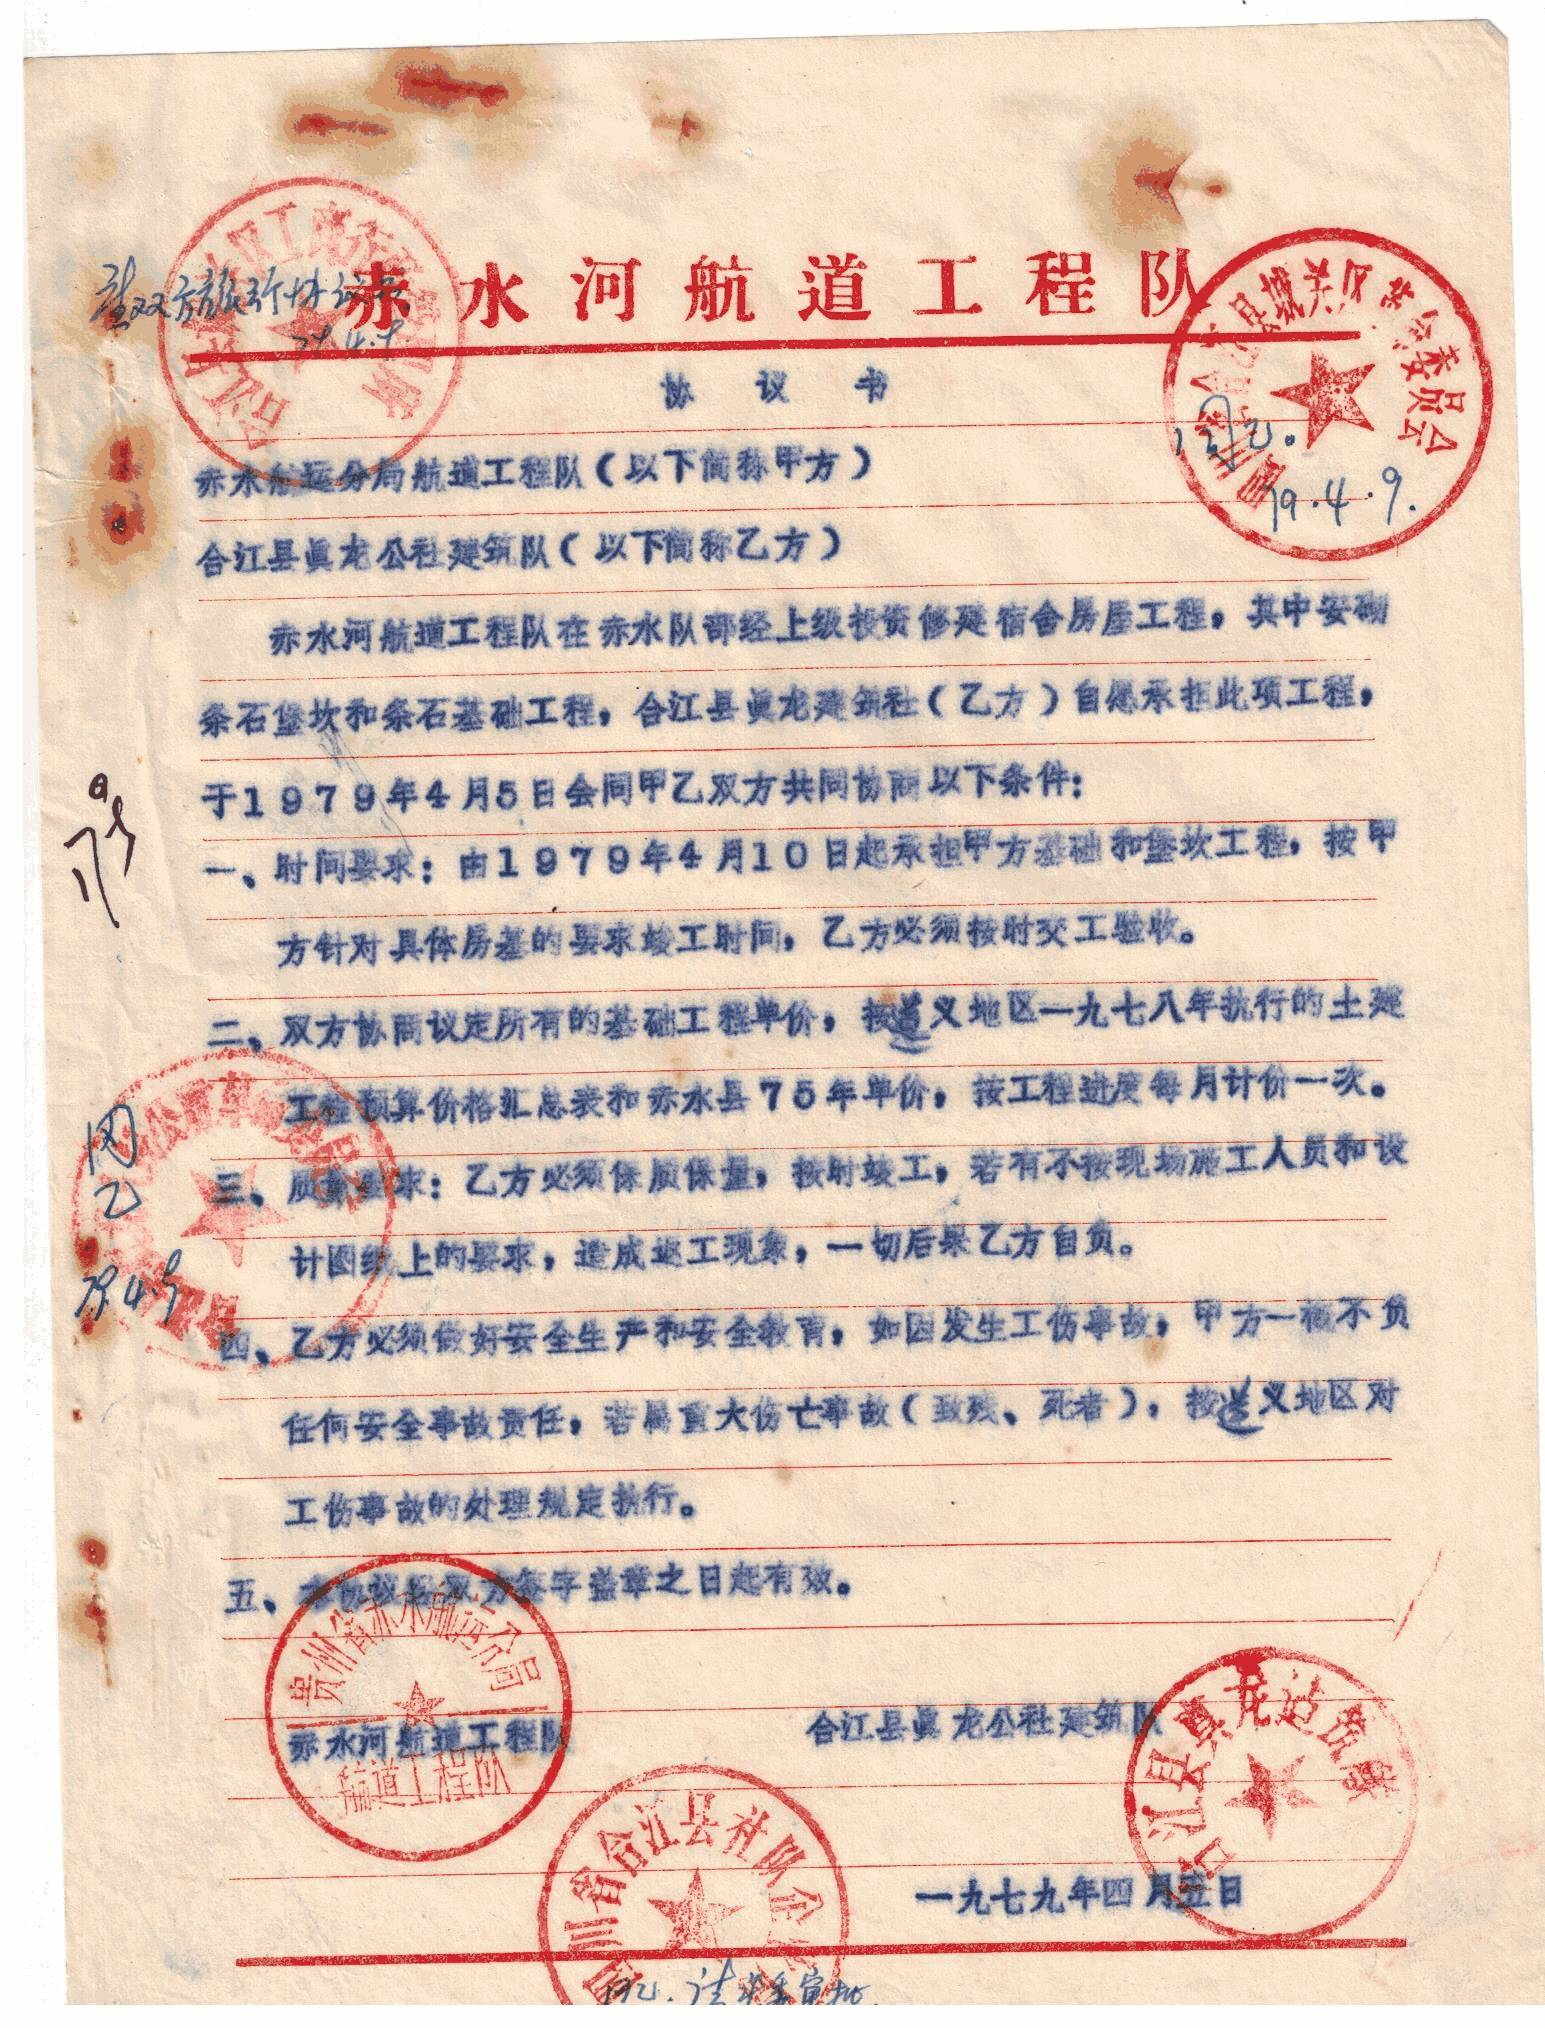 赤水河航道工程队
79.4.9
协议书
79.4.9.
赤水航运分局航道工程队(以下简称甲方)
合江县真龙公社建筑队(以下简称乙方)
赤水河航道工程队在赤水队部经上级投资修建宿舍房屋工程,其中安砌
条石堡坎和条石基础工程,合江县真龙建筑社(乙方)自愿承担此项工程,
于1979年4月5日会同甲乙双方共同协商以下条件:
一、时间要求:由1979年4月10日起承担甲方基础和堡坎工程,按甲
方针对具体房基的要求竣工时间,乙方必须按时交工验收。
二、双方协商议定所有的基础工程单价,按遵义地区一九七八年执行的土建
工程预算价格汇总表和赤水县75年单价,按工程进度每月计价一次。
三、质量要求:乙方必须保质保量,按时竣工,若有不按现场施工人员和设
计图纸上的要求,造成返工现象,一切后果乙方自负。
四、乙方必须做好安全生产和安全教育,如因发生工伤事故,甲方一概不负
任何安全事故责任,若属重大伤亡事故(致残、死者),按遵义地区对
工伤事故的处理规定执行。
五、本协议经双方签字盖章之日起有效。
贵州省赤水航运分局
赤水河航道工程队
航道工程队
合江县真龙公社建筑队
合江县真龙建筑
四川省合江县社队企
一九七九年四月五日